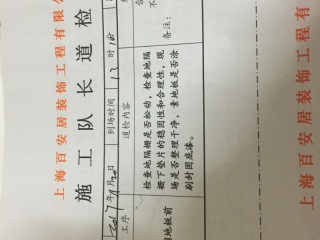 上海百安居装饰工程有限公
施工队长道检
2017年11月20日 到场时间 13时
工序 道检内容
检查地隔栅是否松动，检查地隔
栅下垫片的稳固性和合理性，现
场是否整理干净，素地板是否涂
刷封固底漆。
地板前
备注：
上海百安居装饰工程有